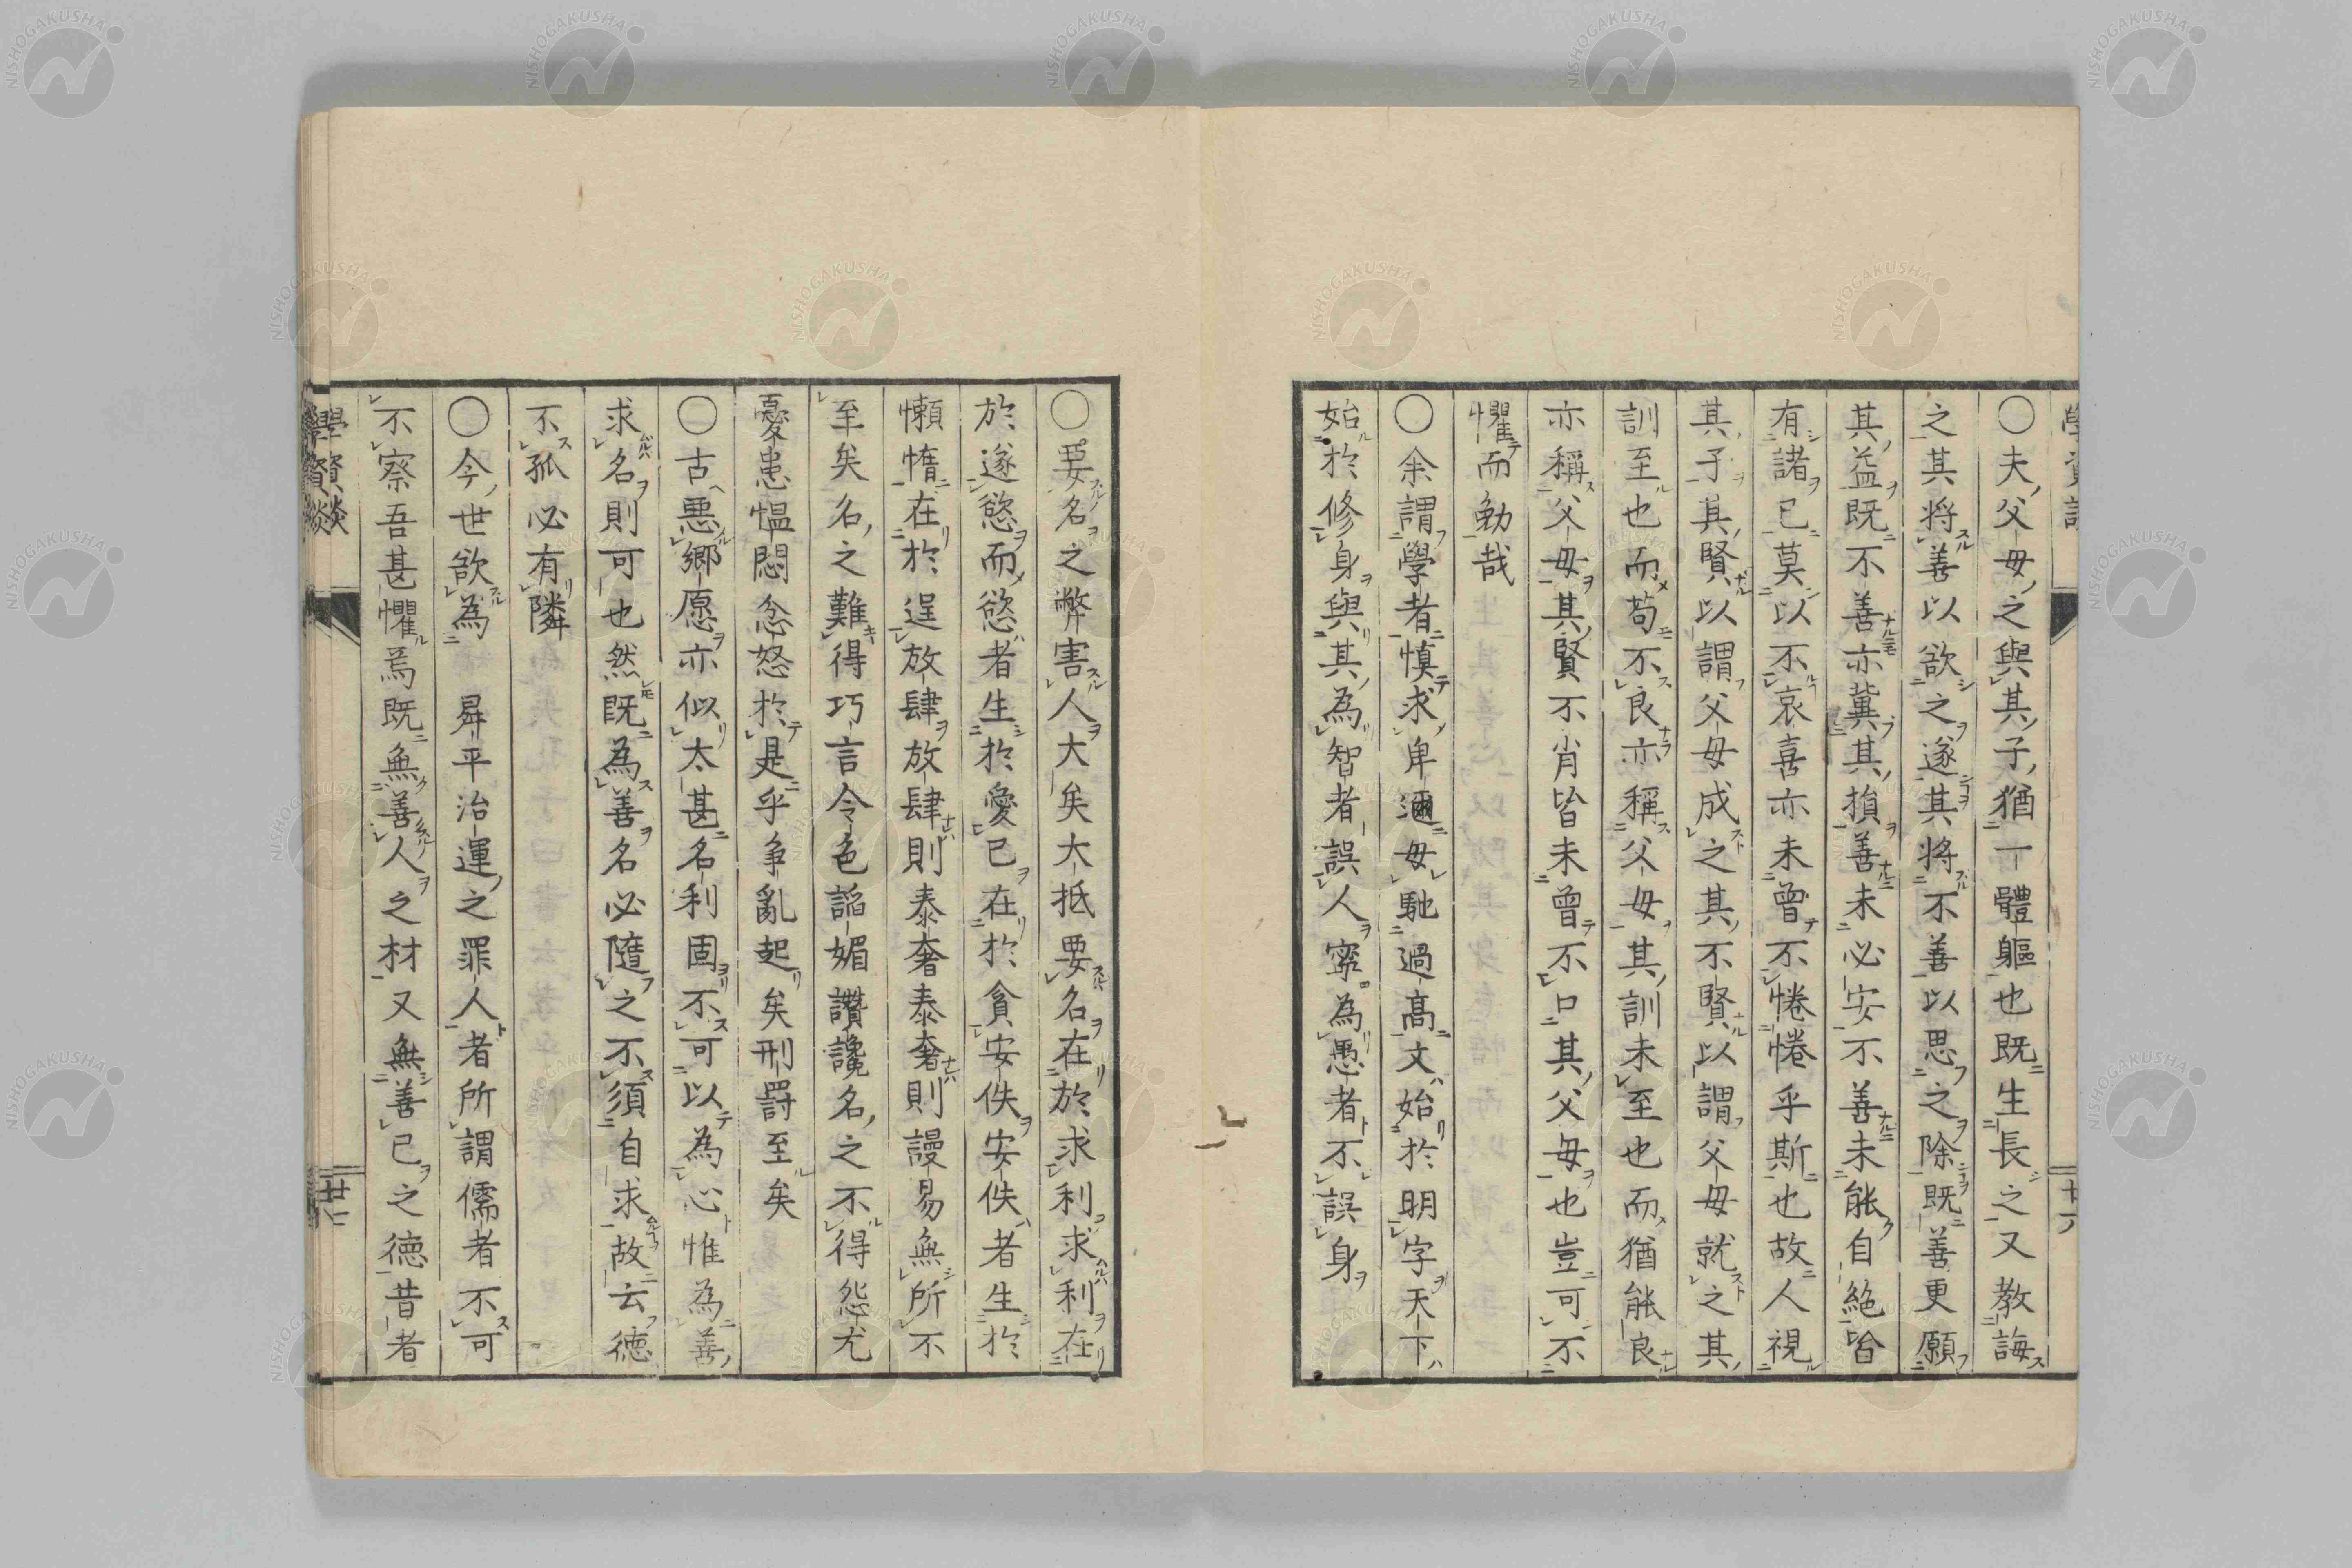 ○夫父母之與其子猶一體軀也既生長之又教誨
之其將善以欲之遂其將不善以思之除既善更願
其益既不善亦冀其損善未必安不善未能自絕皆
有諸已莫以不哀喜亦未曾不惓惓乎斯也故人視
其子其賢以謂父母成之其不賢以謂父母就之其
訓至也而苟不良亦稱父母其訓未至也而猶能良
亦稱父母其賢不肖皆未曾不口其父母也豈可不
懼而勉哉
○余謂學者慎求卑邇毋馳過高文始於明字天下
始於修身與其為智者誤人寧為愚者不誤身
○要名之弊害人大矣大抵要名在於求利求利在
於遂慾而慾者生於愛已在於貪安佚安佚者生於
懶惰在於逞放肆放肆則泰奢泰奢則謾易無所不
至矣名之難得巧言令色諂媚讚讒名之不得怨尤
憂患慍悶忿怒於是乎爭亂起矣刑罸至矣
○古悪鄉愿亦似太甚名利固不可以為心惟為善
求名則可也然既為善名必隨之不須自求故云德
不孤必有隣
○今世欲為昇平治運之罪人者所謂儒者不可
不察吾甚懼焉既無善人之材又無善已之德昔者
學資談
廿一
NISHOGAKUSHA